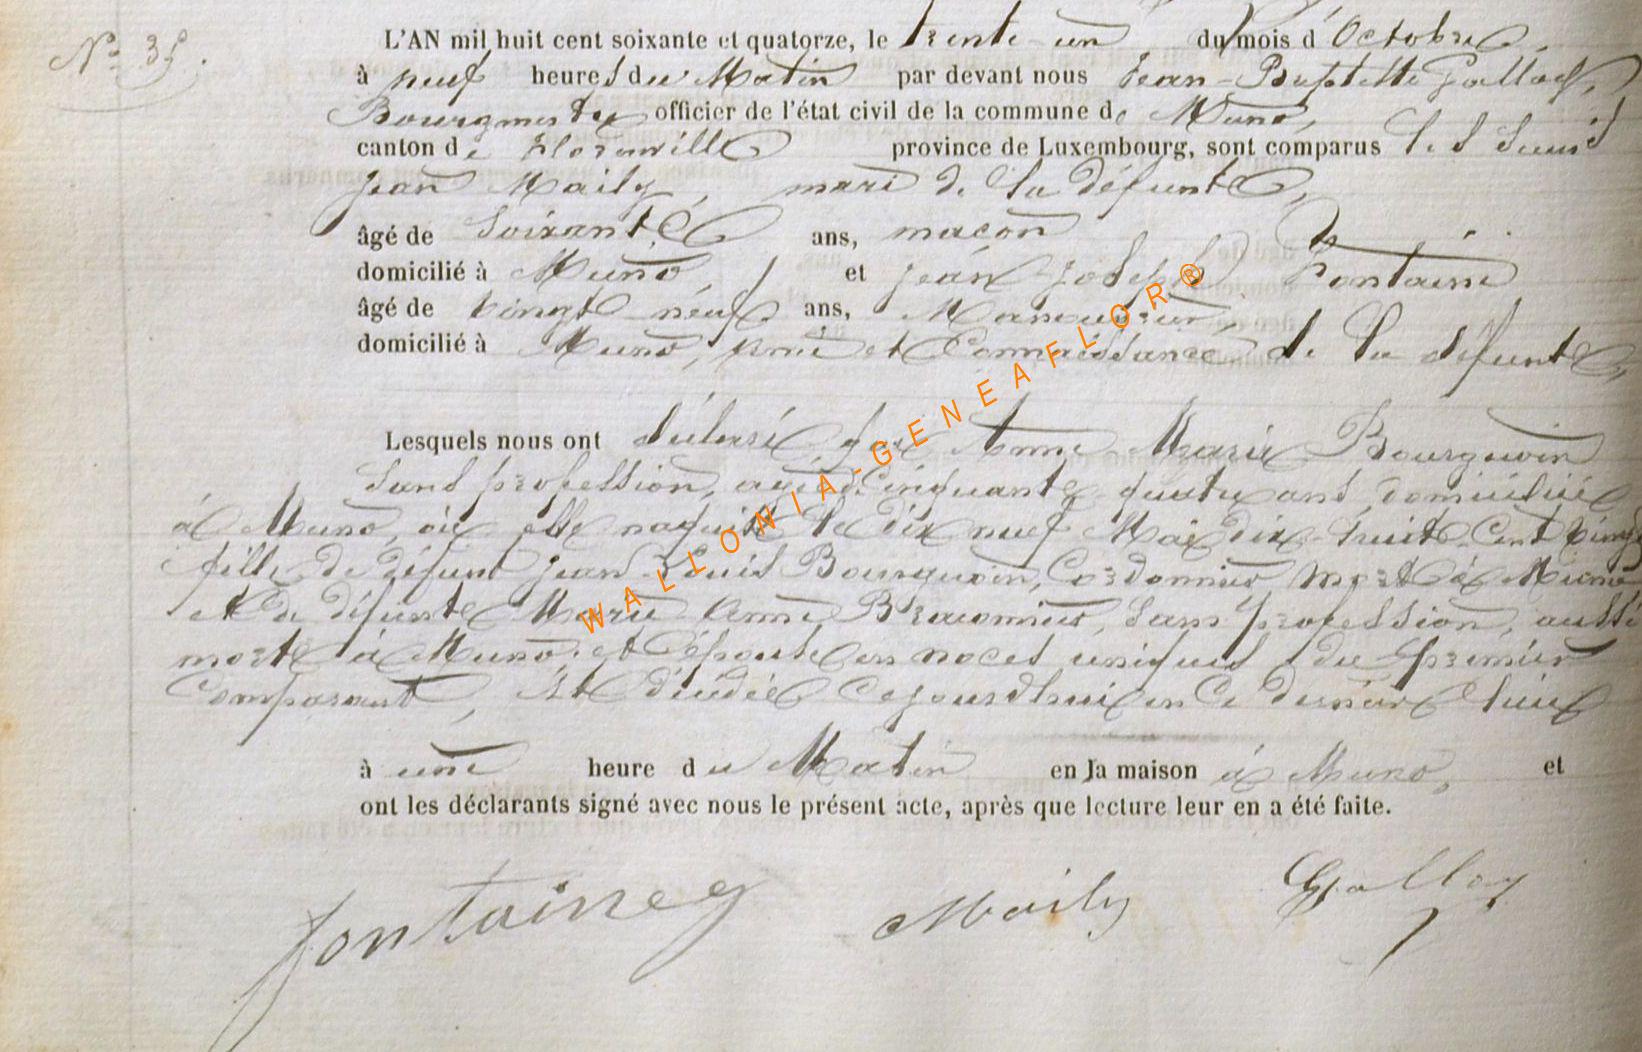 N° 35.
L'AN mil huit cent soixante et quatorze, le trente-un du mois d'Octobre,
à neuf heures du Matin par devant nous Jean-Baptiste Gallaÿ,
Bourgmestre officier de l'état civil de la commune de Muno,
canton de Florenville province de Luxembourg, sont comparus les Sieurs
Jean Maily, mari de la défunte,
âgé de Soixante ans, maçon
domicilié à Muno, et Jean Joseph Fontaine
âgé de vingt neuf ans, Manouvrier
domicilié à Muno, ami et Connaissance de la défunte,
Lesquels nous ont déclaré que Anne Marie Bourguoin
sans profession, agée de Cinquante-quatre ans, domiciliée
à Muno, où elle naquit le dix neuf Mai dix-huit-Cent vingt
fille de défunt Jean-Louis Bourguoin, Cordonnier, mort à Muno
et de défunte Marie Anne Braconnier, Sans profession, aussi
morte à Muno, et Epouse en noces uniques du premier
Comparant, Est décédée Cejourdhui en Ce dernier lieu
à une heure du Matin en la maison à Muno, et
ont les déclarants signé avec nous le présent acte, après que lecture leur en a été faite.
fontaine Maily Gallaÿ
WALLONIA-GENEAFLOR®